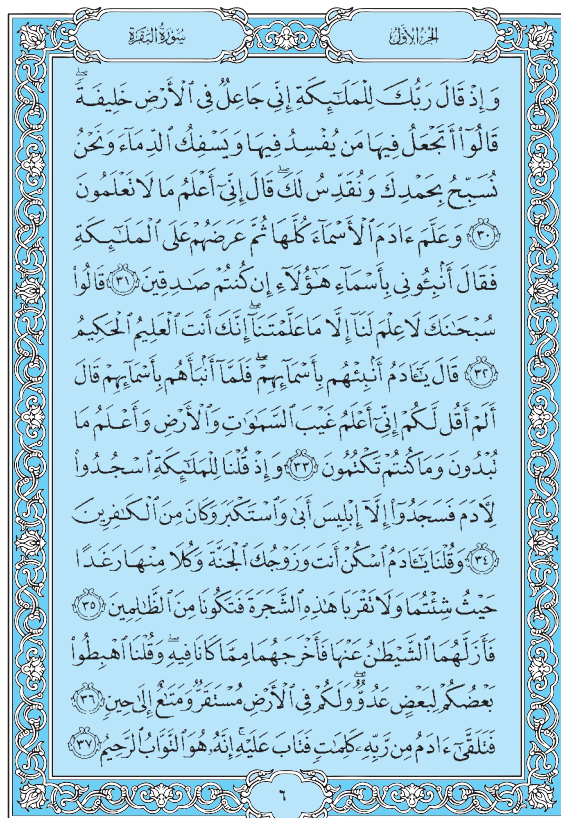 الجزء الأول
سورة البقرة
وَإِذْ قَالَ رَبُّكَ لِلْمَلَـٰٓئِكَةِ إِنِّى جَاعِلٌ فِى ٱلْأَرْضِ خَلِيفَةًۖ
قَالُوٓا۟ أَتَجْعَلُ فِيهَا مَن يُفْسِدُ فِيهَا وَيَسْفِكُ ٱلدِّمَآءَ وَنَحْنُ
نُسَبِّحُ بِحَمْدِكَ وَنُقَدِّسُ لَكَۖ قَالَ إِنِّىٓ أَعْلَمُ مَا لَا تَعْلَمُونَ
٣٠ وَعَلَّمَ ءَادَمَ ٱلْأَسْمَآءَ كُلَّهَا ثُمَّ عَرَضَهُمْ عَلَى ٱلْمَلَـٰٓئِكَةِ
فَقَالَ أَنۢبِـُٔونِى بِأَسْمَآءِ هَـٰٓؤُلَآءِ إِن كُنتُمْ صَـٰدِقِينَ ٣١ قَالُوا۟
سُبْحَـٰنَكَ لَا عِلْمَ لَنَآ إِلَّا مَا عَلَّمْتَنَآۖ إِنَّكَ أَنتَ ٱلْعَلِيمُ ٱلْحَكِيمُ
٣٢ قَالَ يَـٰٓـَٔادَمُ أَنۢبِئْهُم بِأَسْمَآئِهِمْۖ فَلَمَّآ أَنۢبَأَهُم بِأَسْمَآئِهِمْ قَالَ
أَلَمْ أَقُل لَّكُمْ إِنِّىٓ أَعْلَمُ غَيْبَ ٱلسَّمَـٰوَٰتِ وَٱلْأَرْضِ وَأَعْلَمُ مَا
تُبْدُونَ وَمَا كُنتُمْ تَكْتُمُونَ ٣٣ وَإِذْ قُلْنَا لِلْمَلَـٰٓئِكَةِ ٱسْجُدُوا۟
لِـَٔادَمَ فَسَجَدُوٓا۟ إِلَّآ إِبْلِيسَ أَبَىٰ وَٱسْتَكْبَرَ وَكَانَ مِنَ ٱلْكَـٰفِرِينَ
٣٤ وَقُلْنَا يَـٰٓـَٔادَمُ ٱسْكُنْ أَنتَ وَزَوْجُكَ ٱلْجَنَّةَ وَكُلَا مِنْهَا رَغَدًا
حَيْثُ شِئْتُمَا وَلَا تَقْرَبَا هَـٰذِهِ ٱلشَّجَرَةَ فَتَكُونَا مِنَ ٱلظَّـٰلِمِينَ ٣٥
فَأَزَلَّهُمَا ٱلشَّيْطَـٰنُ عَنْهَا فَأَخْرَجَهُمَا مِمَّا كَانَا فِيهِۖ وَقُلْنَا ٱهْبِطُوا۟
بَعْضُكُمْ لِبَعْضٍ عَدُوٌّۖ وَلَكُمْ فِى ٱلْأَرْضِ مُسْتَقَرٌّ وَمَتَـٰعٌ إِلَىٰ حِينٍ ٣٦
فَتَلَقَّىٰٓ ءَادَمُ مِن رَّبِّهِۦ كَلِمَـٰتٍ فَتَابَ عَلَيْهِۚ إِنَّهُۥ هُوَ ٱلتَّوَّابُ ٱلرَّحِيمُ ٣٧
٦